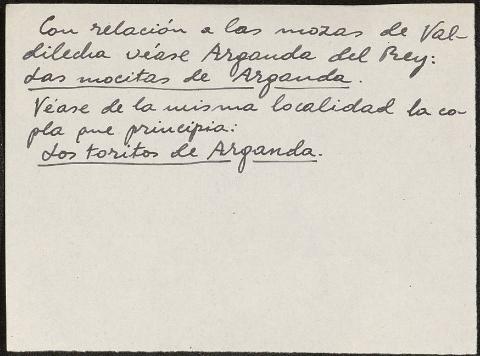 Con relación a las mozas de Val-
dilecha véase Arganda del Rey:
Las mocitas de Arganda.
Véase de la misma localidad la co-
pla que principia:
Los toritos de Arganda.